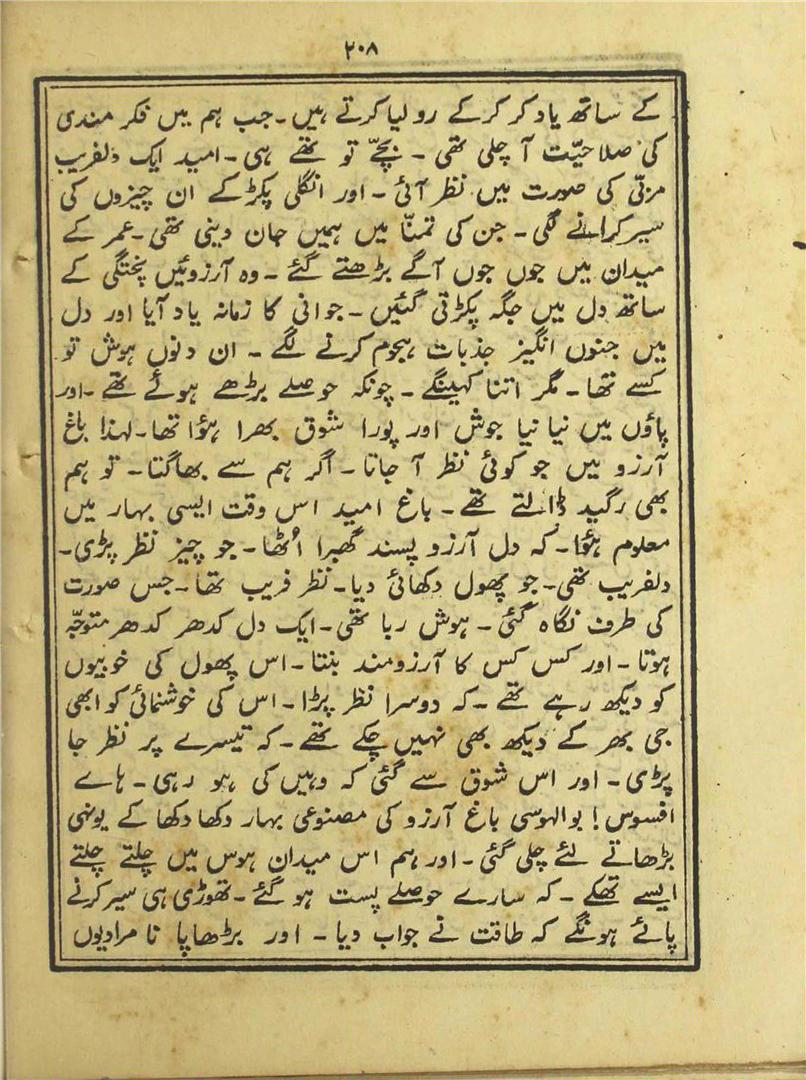 ۲۰۸
کے ساتھ یاد کر کرکے رو لیا کرتے ہیں۔ جب ہم میں فکر مندی
کی صلاحیّت آ چلی تھی ۔ بچّے تو تھے ہی۔ امید ایک دلفریب
مربّی کی صورت میں نظر آئی ۔ اور انگلی پکڑ کے ان چیزوں کی
سیر کرانے لگی ۔ جن کی تمنّا میں ہمیں جان دینی تھی۔ عمر کے
میدان میں جوں جوں آگے بڑھتے گئے ۔ وہ آرزوئیں پختگی کے
ساتھ دل میں جگہ پکڑتی گئیں ۔ جوانی کا زمانہ یاد آیا اور دل
میں جنوں انگیز جذبات ہجوم کرنے لگے ۔ ان دنوں ہوش تو
کسے تھا ۔ مگر اتنا کہینگے ۔ چونکہ حوصلے بڑھے ہوئے تھے ۔ اور
پاؤں میں نیا نیا جوش اور پورا شوق بھرا ہؤا تھا ۔ لہذا باغ
آرزو میں جو کوئی نظر آ جاتا ۔ اگر ہم سے بھاگتا ۔ تو ہم
بھی رگید ڈالتے تھے ۔ باغ امید اس وقت ایسی بہار میں
معلوم ہؤا ۔ کہ دل آرزو پسند گھبرا اُٹھا ۔ جو چیز نظر پڑی ۔
دلفریب تھی ۔ جو پھول دکھائی دیا ۔ نظر فریب تھا ۔ جس صورت
کی طرف نگاہ گئی ۔ ہوش ربا تھی ۔ ایک دل کدھر کدھر متوجّہ
ہوتا ۔ اور کس کس کا آرزومند بنتا ۔ اس پھول کی خوبیوں
کو دیکھ رہے تھے ۔ کہ دوسرا نظر پڑا ۔ اس کی خوشنمائی کو ابھی
جی بھر کے دیکھ بھی نہیں چکے تھے ۔ کہ تیسرے پر نظر جا
پڑی ۔ اور اس شوق سے گئی کہ وہیں کی ہو رہی ۔ ہاے
افسوس ! بوالہوسی باغ آرزو کی مصنوعی بہار دکھا دکھا کے یونہی
بڑھاتے لئے چلی گئی ۔ اور ہم اس میدان ہوس میں چلتے چلتے
ایسے تھکے ۔ کہ سارے حوصلے پست ہو گئے ۔ تھوڑی ہی سیر کرنے
پائے ہونگے کہ طاقت نے جواب دیا ۔ اور بڑھاپا نا مرادیوں